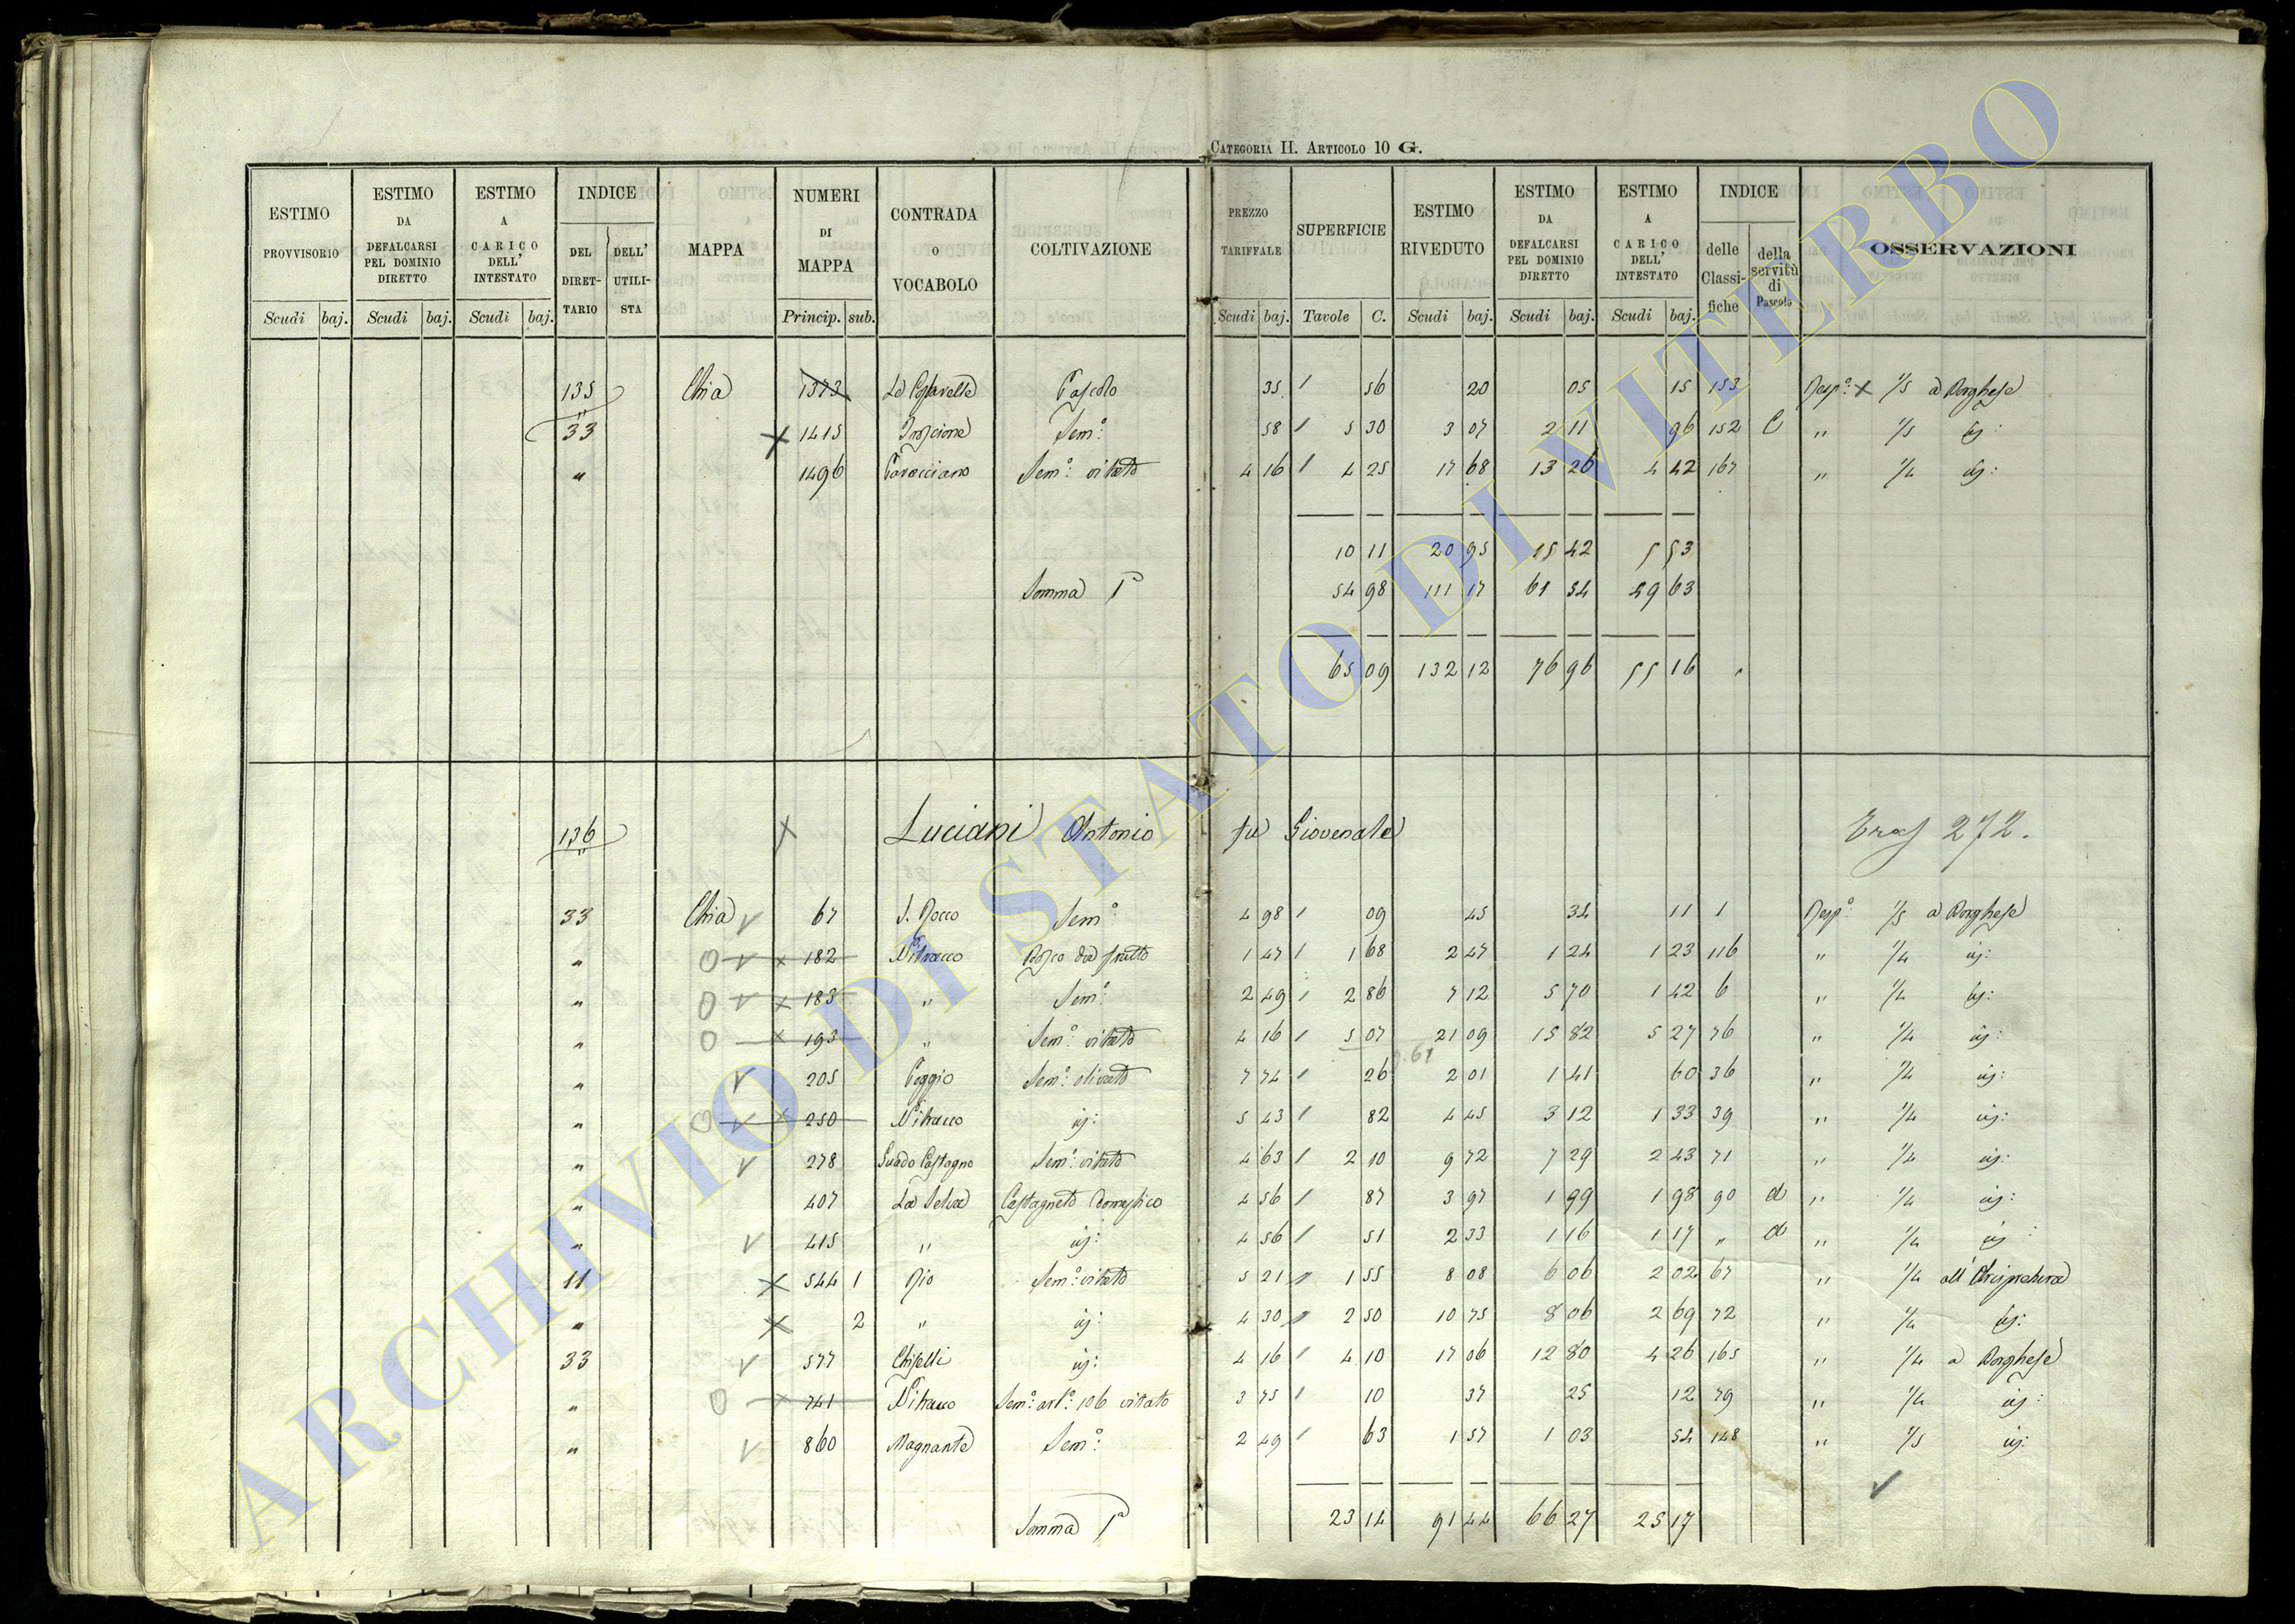 CATEGORIA II. ARTICOLO 10 G.
ESTIMO PROVVISORIO | ESTIMO DA DEFALCARSI PEL DOMINIO DIRETTO | ESTIMO A CARICO DELL' INTESTATO | INDICE DEL DIRETTARIO | DELL' UTILISTA | MAPPA | NUMERI DI MAPPA | CONTRADA O VOCABOLO | COLTIVAZIONE | PREZZO TARIFFALE | SUPERFICIE | ESTIMO RIVEDUTO | ESTIMO DA DEFALCARSI PEL DOMINIO DIRETTO | ESTIMO A CARICO DELL' INTESTATO | INDICE delle Classifiche | della servitù di Pascolo | OSSERVAZIONI
Scudi baj. Scudi baj. Scudi baj. Princip. sub. Scudi baj. Tavole C. Scudi baj. Scudi baj. Scudi baj.
135 Chia 1373 Pascolo 35 56 20 05 15 153 Resp.e 1/5 a Borghese
33 1415 Sem.o 58 5 30 3 07 2 11 96 152 C " 1/5 ij:
" 1496 Pavacciano Sem.o vitato 4 16 4 25 17 68 13 26 4 42 167 " 1/4 ij:
10 11 20 95 15 42 5 53
Somma 54 98 111 17 61 54 49 63
65 09 132 12 76 96 55 16
136 Luciani Antonio fu Giovenale 272.
33 Chia 67 S. Rocco Sem.o 4 98 09 45 34 11 1 1/5 a Borghese
" 182 Bosco da frutto 1 47 1 68 2 47 1 24 1 23 116 " 1/4 ij:
" 183 " Sem.o 2 49 2 86 7 12 5 70 1 42 6 " 1/4 ij:
" 193 " Sem.o vitato 4 16 5 07 21 09 15 82 5 27 76 " 1/4 ij:
" 205 Poggio Sem.o olivato 7 74 26 2 01 1 41 60 36 " 1/4 ij:
" 250 ij: 5 43 82 4 45 3 12 1 33 39 " 1/4 ij:
" 278 Guado Castagno Sem.o vitato 4 63 2 10 9 72 7 29 2 43 71 " 1/4 ij:
" 407 La Selva Castagneto domestico 4 56 87 3 97 1 99 1 98 90 d " 1/4 ij:
" 415 " ij: 4 56 51 2 33 1 16 1 17 " d " 1/4 ij:
11 544 1 Rio Sem.o vitato 5 21 1 55 8 08 6 06 2 02 67 " 1/4 all'Arcipretura
" 2 " ij: 4 30 2 50 10 75 8 06 2 69 72 " 1/4 ij:
33 577 Chiselli ij: 4 16 4 10 17 06 12 80 4 26 165 " 1/4 a Borghese
" 741 Sem.o art.o 106 vitato 3 75 10 37 25 12 79 " 1/4 ij:
" 860 Magnante Sem.o 2 49 63 1 57 1 03 54 148 " 1/5 ij:
Somma 23 14 91 44 66 27 25 17
ARCHIVIO DI STATO DI VITERBO